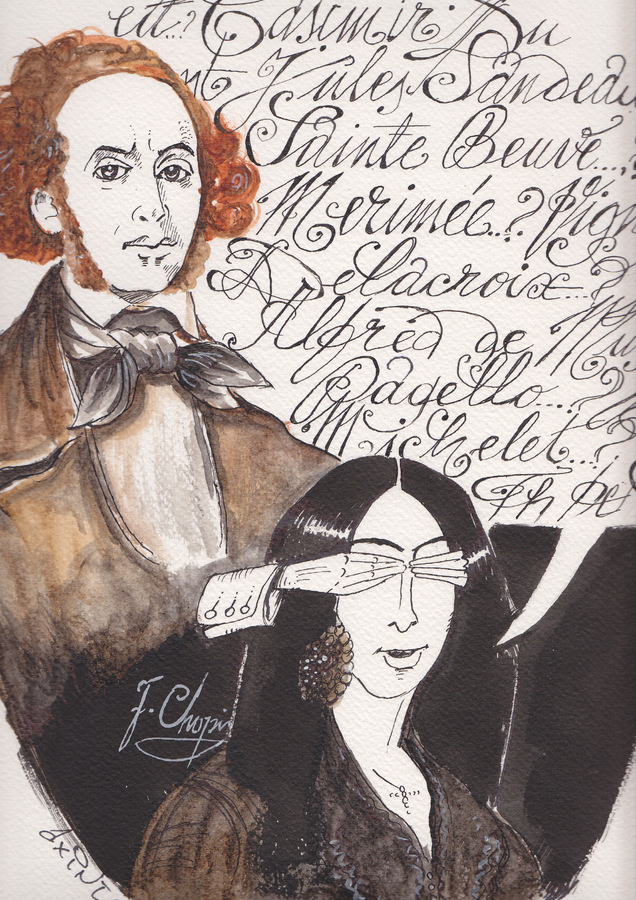 Casimir Du
nt Jules Sandeau
Sainte Beuve...?
Merimée...? Vign
Delacroix...?
Alfred de Mus
Pagello...?
Michelet...?
Th
F. Chopin